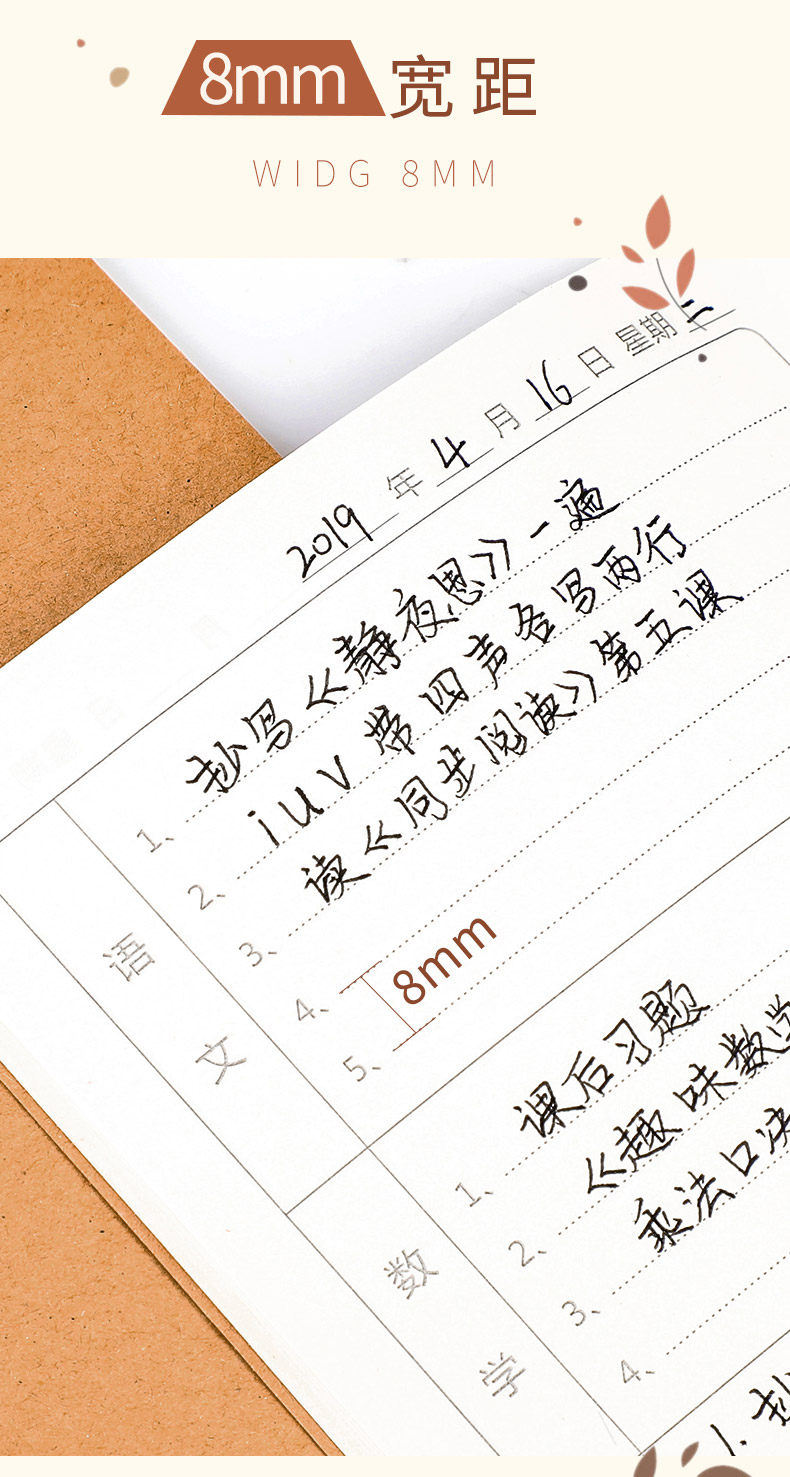 8mm 宽距
WIDG 8MM
2019 年 4 月 16 日 星期 二
语文
1、抄写《静夜思》一遍
2、i u v 带四声各写两行
3、读《同步阅读》第五课
4、
8mm
5、
数学
1、课后习题
2、《趣味数学
3、乘法口决
4、
1. 抄